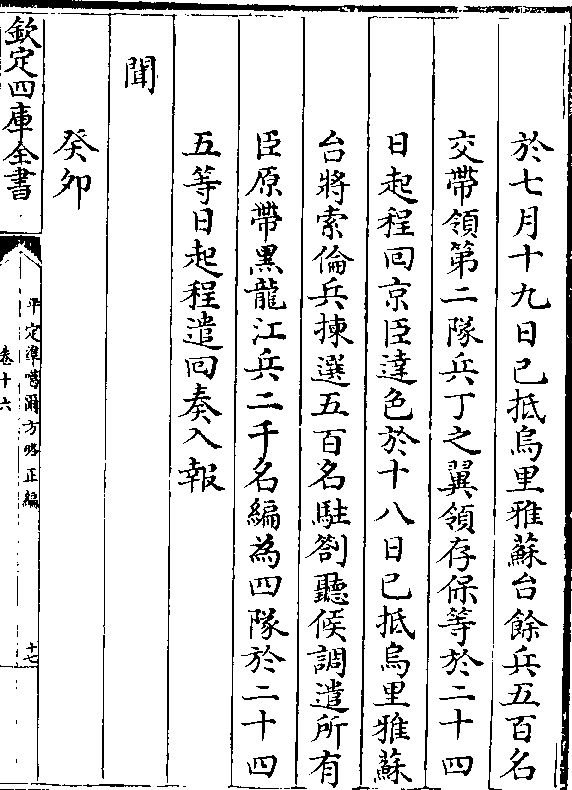 於七月十九日已抵烏里雅蘇台餘兵五百名
交帶領第二隊兵丁之翼領存保等於二十四
日起程回京臣達色於十八日已抵烏里雅蘇
台將索倫兵揀選五百名駐劄聽候調遣所有
臣原帶黒龍江兵二千名編為四隊於二十四
五等日起程遣回奏入報
聞
癸卯
欽定四庫全書
平定準噶爾方略正編
卷十六
十七